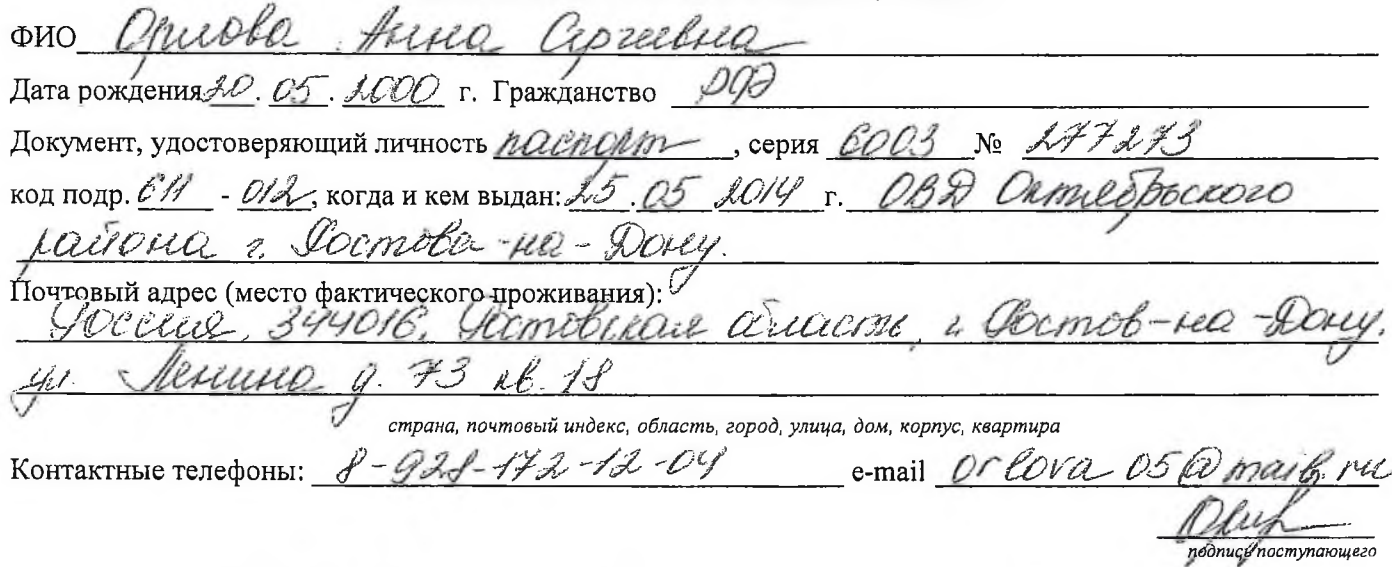 ФИО Орлова Анна Сергеевна
Дата рождения 20.05.2000 г. Гражданство РФ
Документ, удостоверяющий личность паспорт, серия 6003 № 277273
код подр. 611 - 012, когда и кем выдан: 25.05 2014 г. ОВД Октябрьского
района г. Ростова-на-Дону.
Почтовый адрес (место фактического проживания):
Россия, 344016, Ростовская область, г. Ростов-на-Дону,
ул. Ленина д. 73 кв. 18
страна, почтовый индекс, область, город, улица, дом, корпус, квартира
Контактные телефоны: 8-928-172-12-04 e-mail orlova05@mail.ru
подпись поступающего